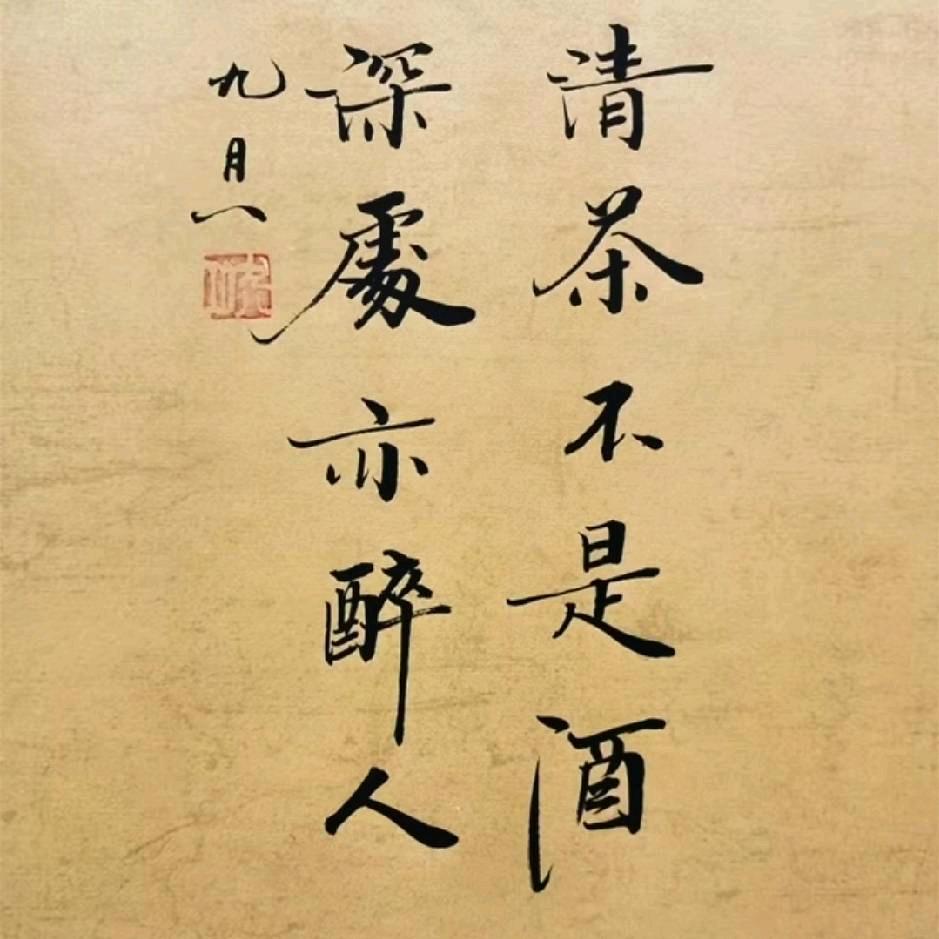 清茶不是酒
深處亦醉人
九月八